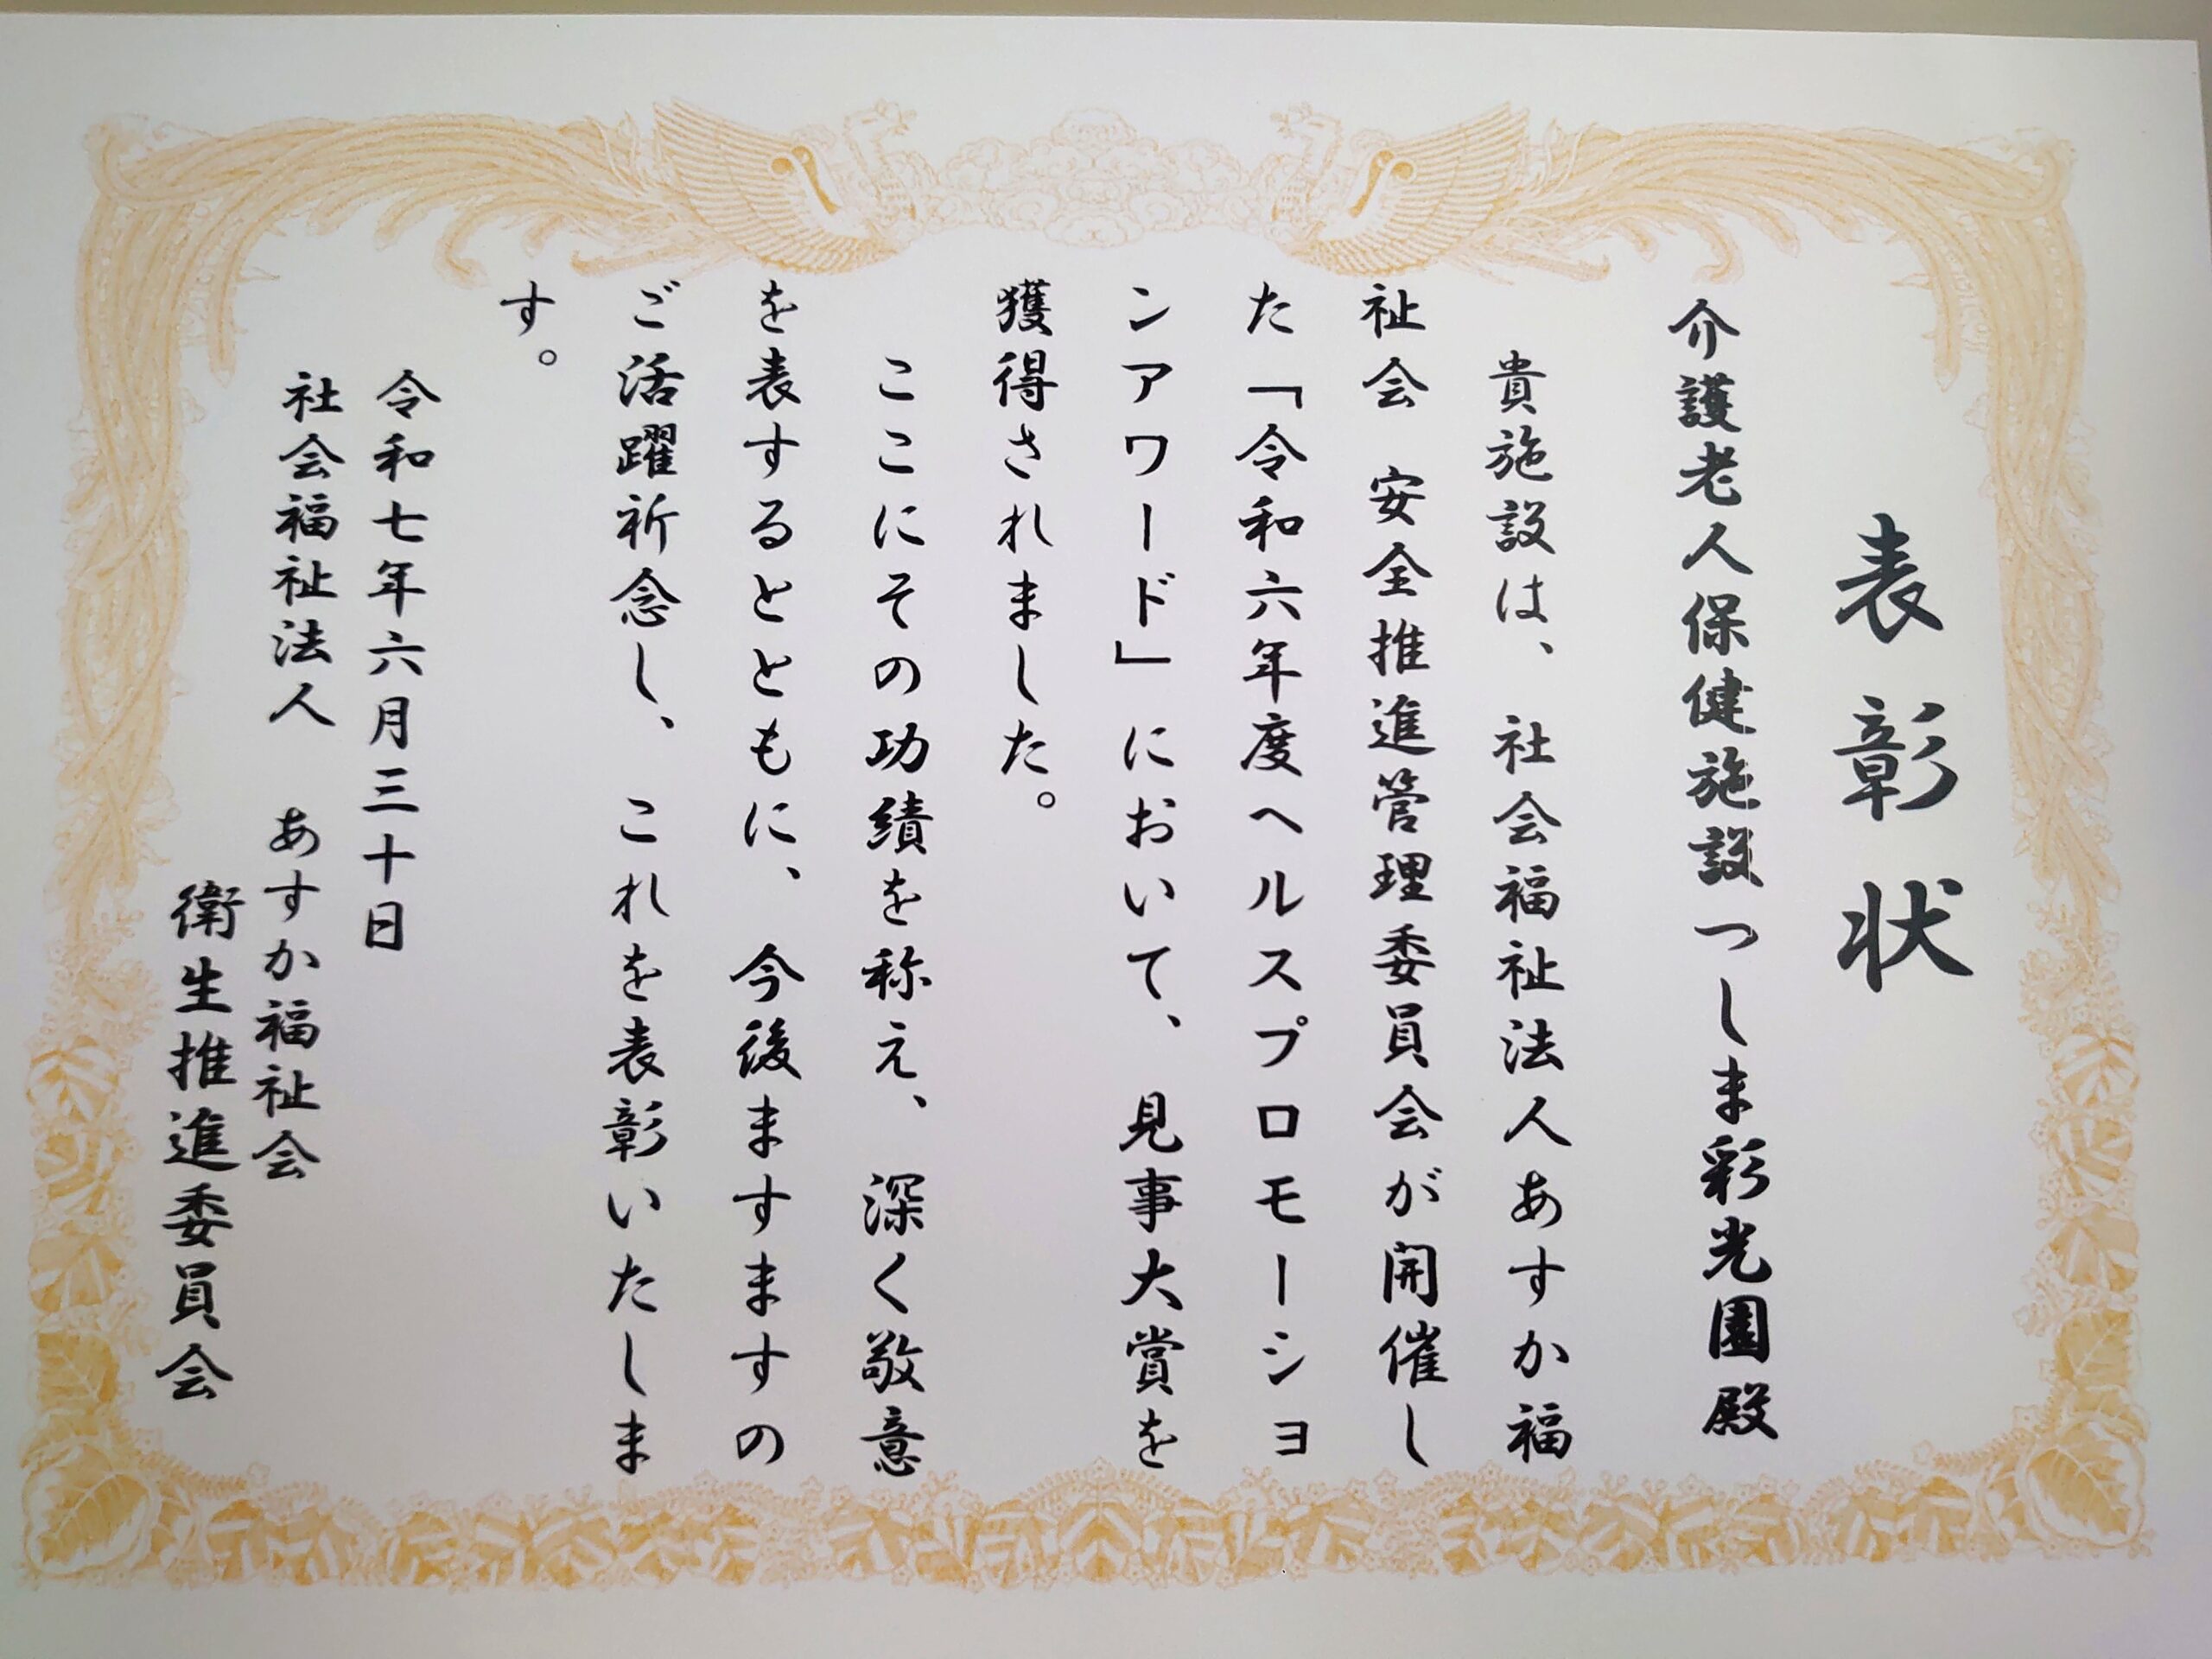 表彰状
介護老人保健施設つしま彩光園殿
貴施設は、社会福祉法人あすか福
祉会　安全推進管理委員会が開催し
た「令和六年度ヘルスプロモーショ
ンアワード」において、見事大賞を
獲得されました。
ここにその功績を称え、深く敬意
を表するとともに、今後ますますの
ご活躍祈念し、これを表彰いたしま
す。
令和七年六月三十日
社会福祉法人　あすか福祉会
衛生推進委員会